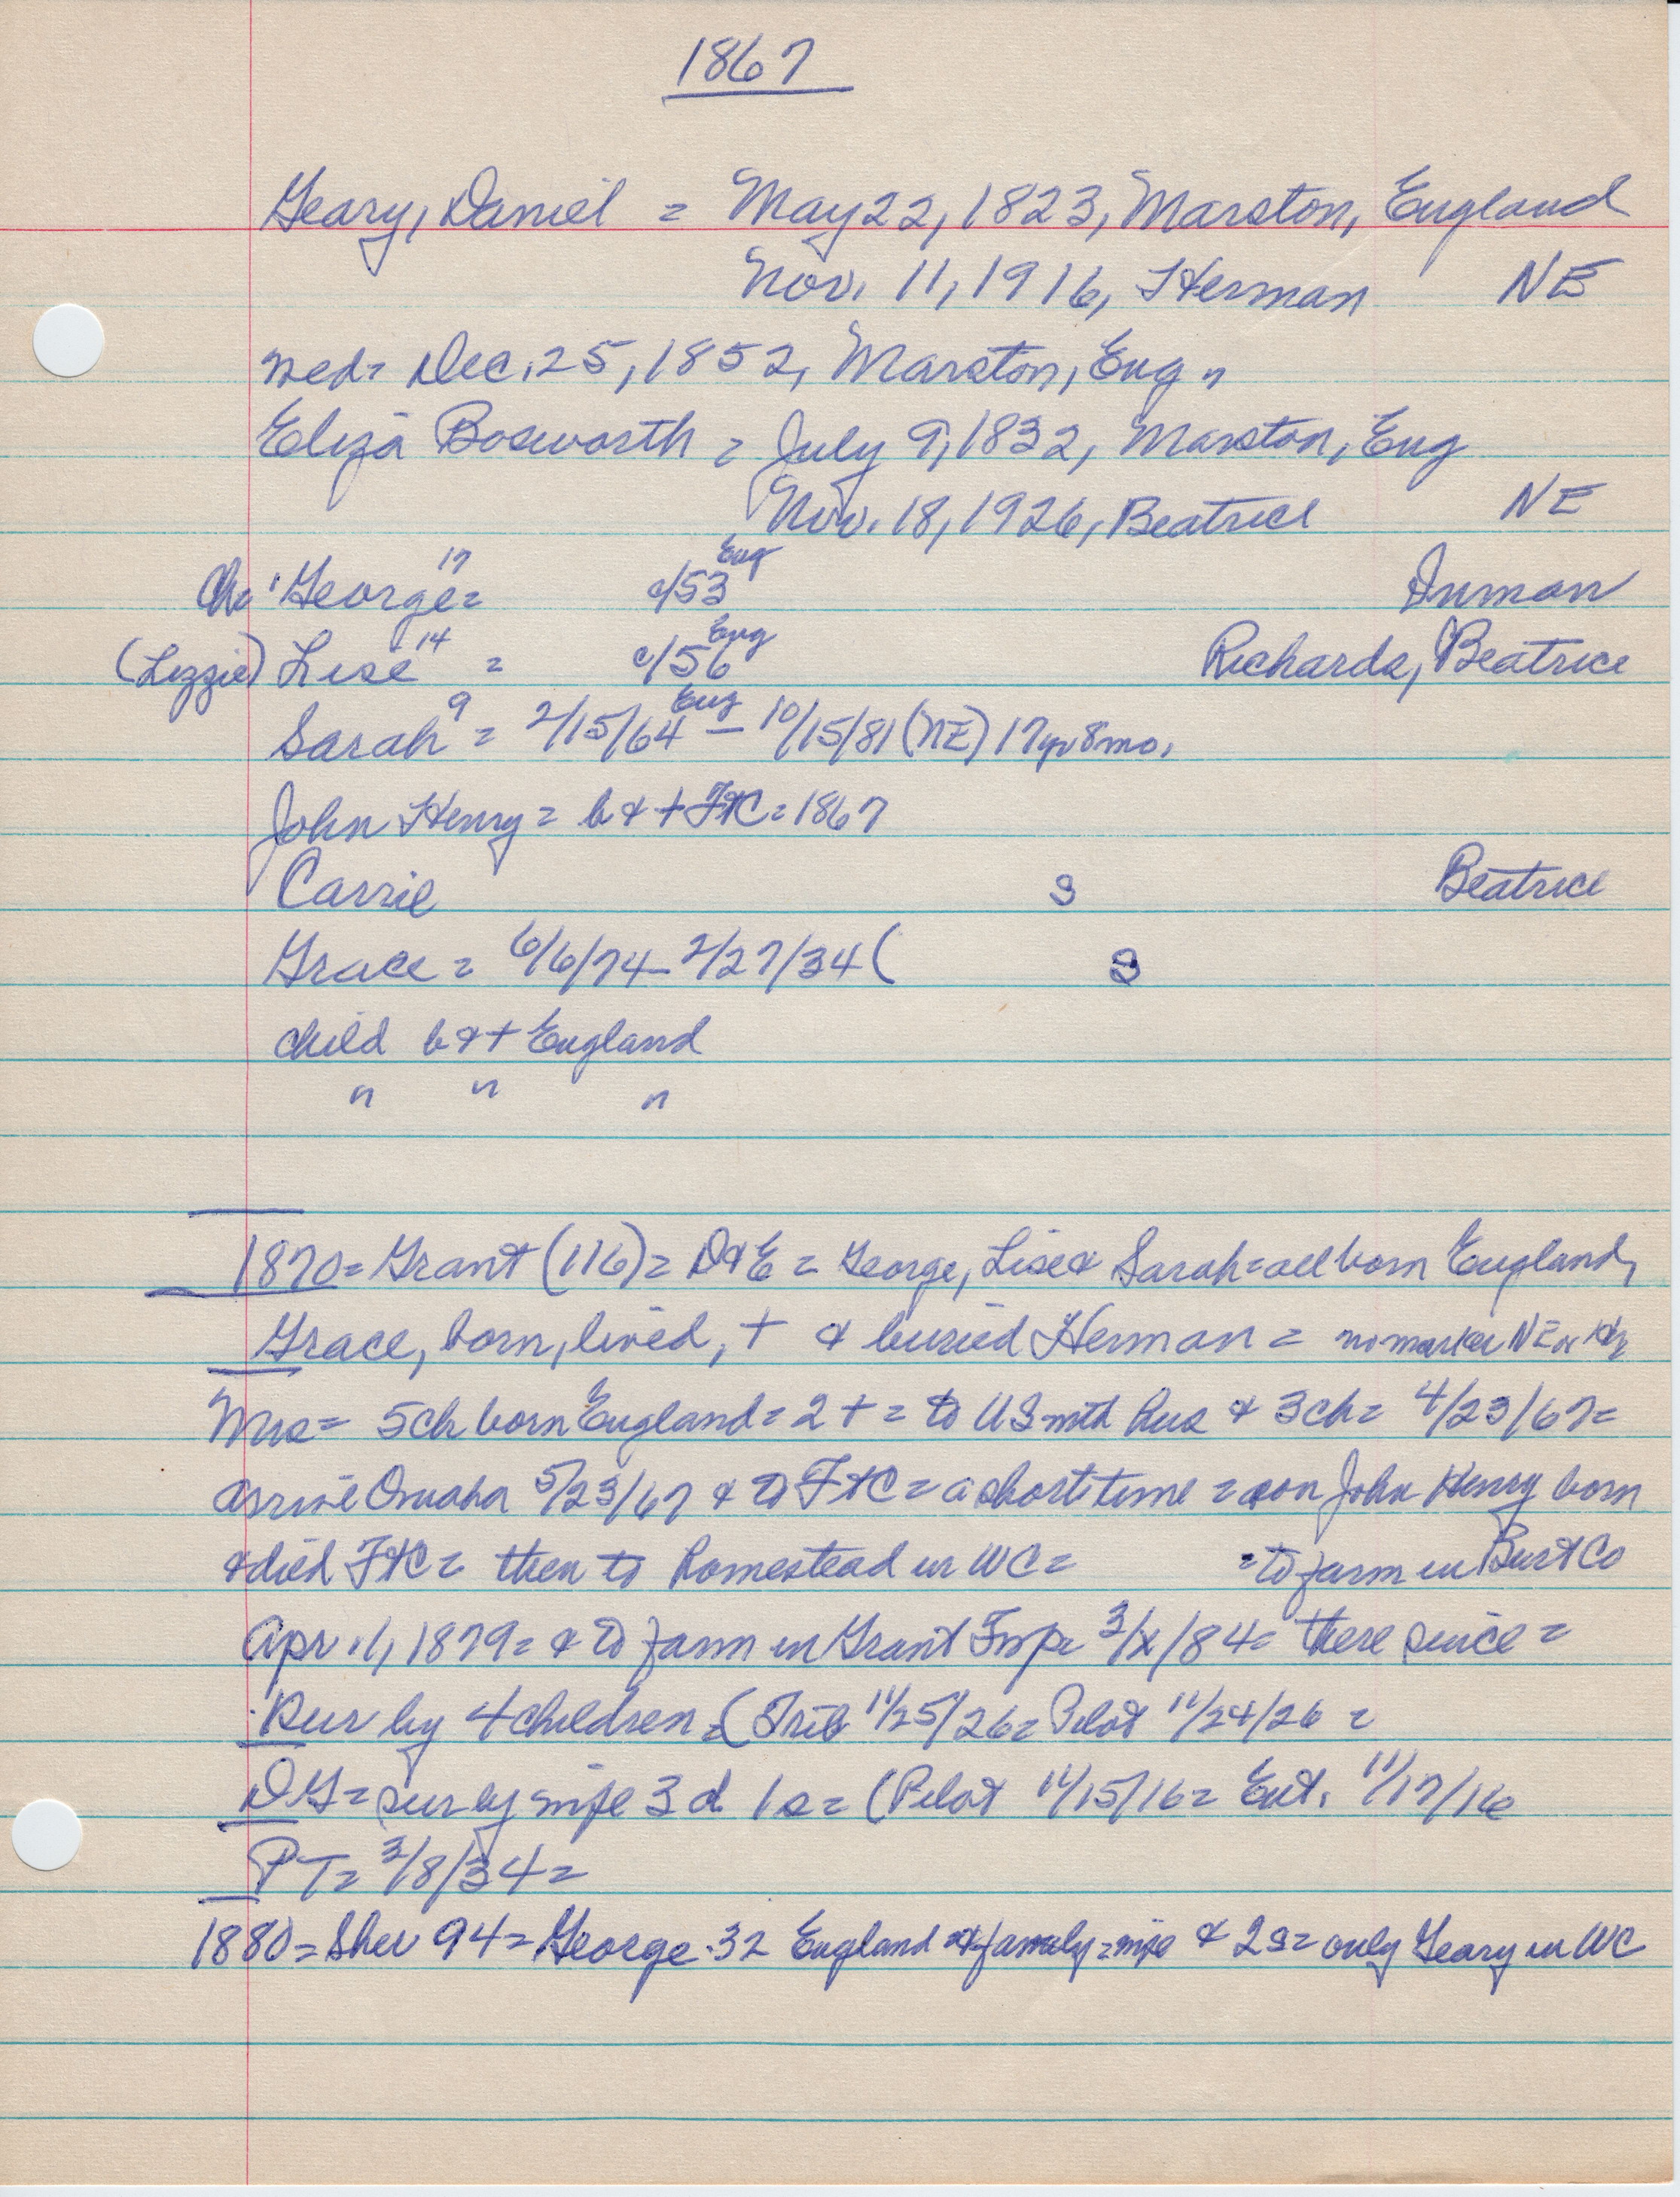 1867
Geary, Daniel = May 22, 1823, Marston, England
Nov. 11, 1916, Herman NE
wed = Dec. 25, 1852, Marston, Eng.
Eliza Bosworth = July 9, 1832, Marston, Eng
Nov. 18, 1926, Beatrice NE
Ch: George 17 = c/53 Eng Inman
(Lizzie) Lise 14 = c/56 Eng Richards, Beatrice
Sarah 9 = 2/15/64 Eng — 10/15/81 (NE) 17yr 8mo.
John Henry = b & + FtC = 1867
Carrie S Beatrice
Grace = 6/6/74 - 2/27/34 ( S
child b & + England
" " "
1870 = Grant (116) = D & E = George, Lise & Sarah = all born England,
Grace, born, lived, + & buried Herman = no marker NE or
Mrs = 5 ch born England = 2 + = to US with hus & 3 ch = 4/23/67 =
arrive Omaha 5/23/67 & to FtC = a short time = son John Henry born
& died FtC = then to homestead in WC = = to farm in Burt Co
Apr. 1, 1879 = & to farm in Grant Twp = 3/x/84 = there since =
Sur by 4 children = (Trib 11/25/26 = Pilot 11/24/26 =
DG = sur by wife 3 d 1 s = (Pilot 11/15/16 = Ent. 11/17/16
PT = 3/8/34 =
1880 = Sher 94 = George 32 England & family = wife & 2 s = only Geary in WC